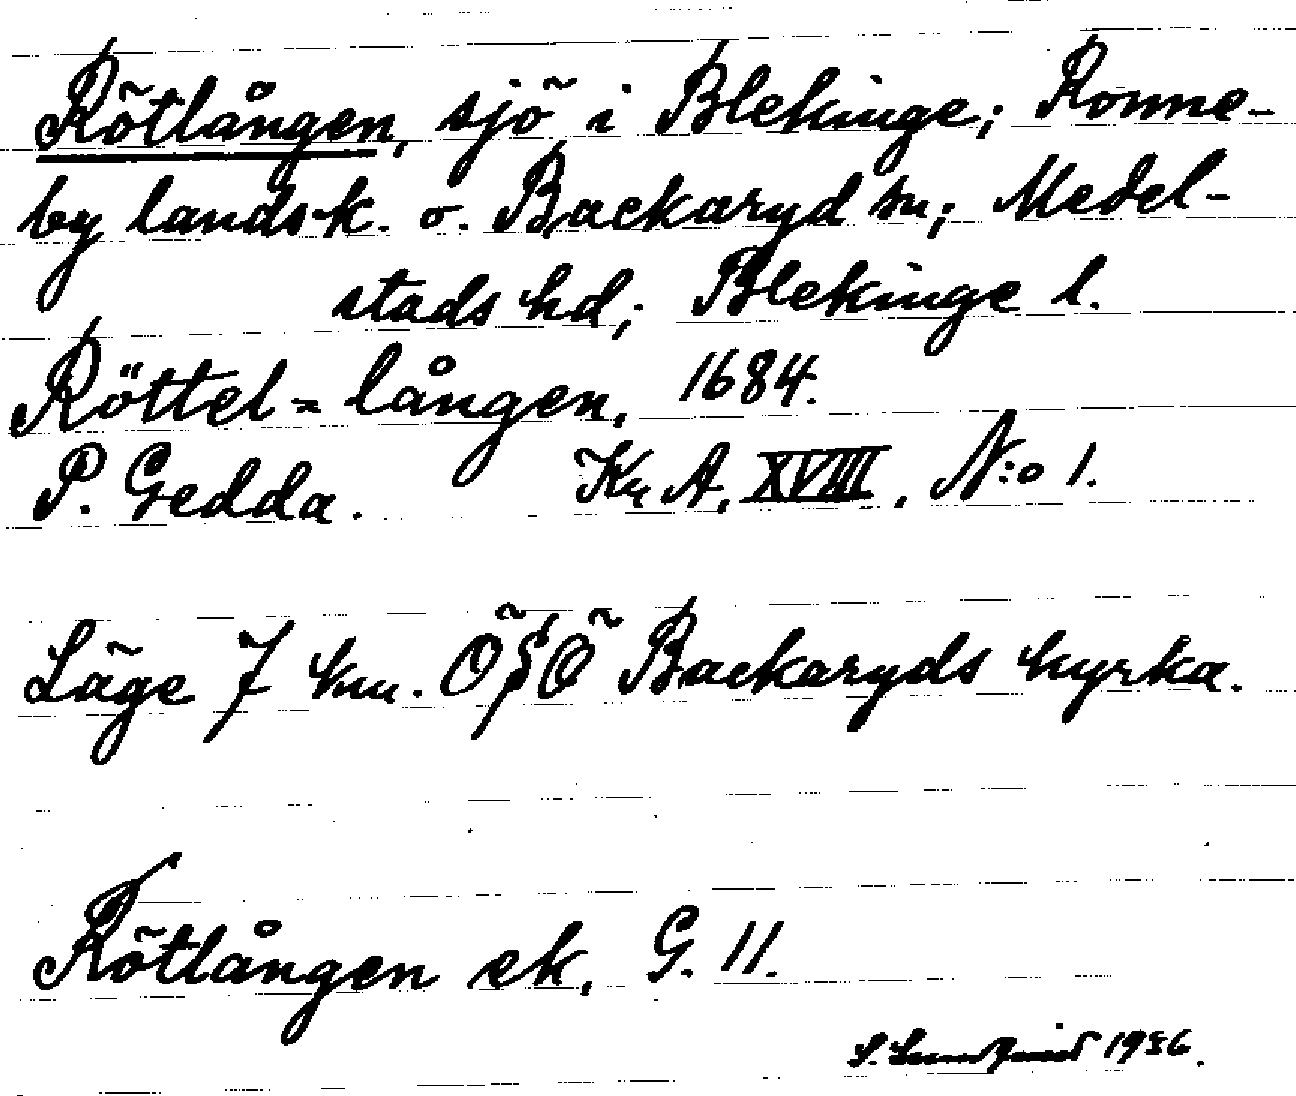 Rötlången, sjö i Blekinge; Ronne-
by landsk. o. Backaryd sn; Medel-
stads hd; Blekinge l.
Röttel=lången, 1684.
P. Gedda. Kr A, XVIII, N:o 1.
Läge 7 km. ÖSÖ Backaryds kyrka.
Rötlången ek, G. 11.
S. 1956.